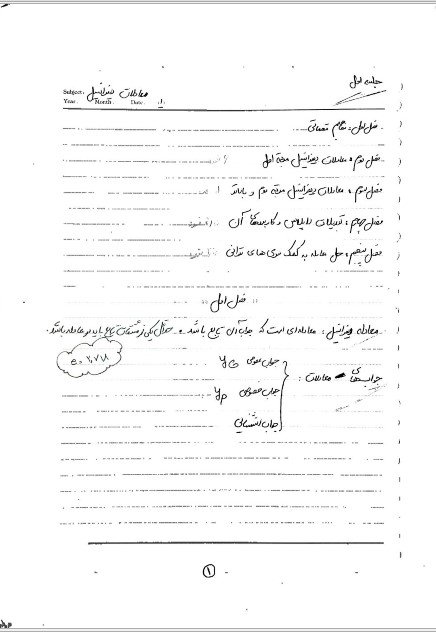 جلسه اول
Subject: معادلات دیفرانسیل
Year. Month. Date. ا.
فصل اول: مفاهیم مقدماتی
فصل دوم: معادلات دیفرانسیل مرتبه اول
فصل سوم: معادلات دیفرانسیل مرتبه دوم و بالاتر
فصل چهارم: تبدیلات لاپلاس و کاربردهای آن
فصل پنجم: حل معادله به کمک سری های توانی
"فصل اول"
معادله دیفرانسیل: معادله ای است که جواب آن تابع باشد. حداقل یکی از مشتقات تابع باید در معادله باشد.
e = 2,718
جواب عمومی yG
جواب های معادلات:
جواب خصوصی yP
جواب استثنایی
1